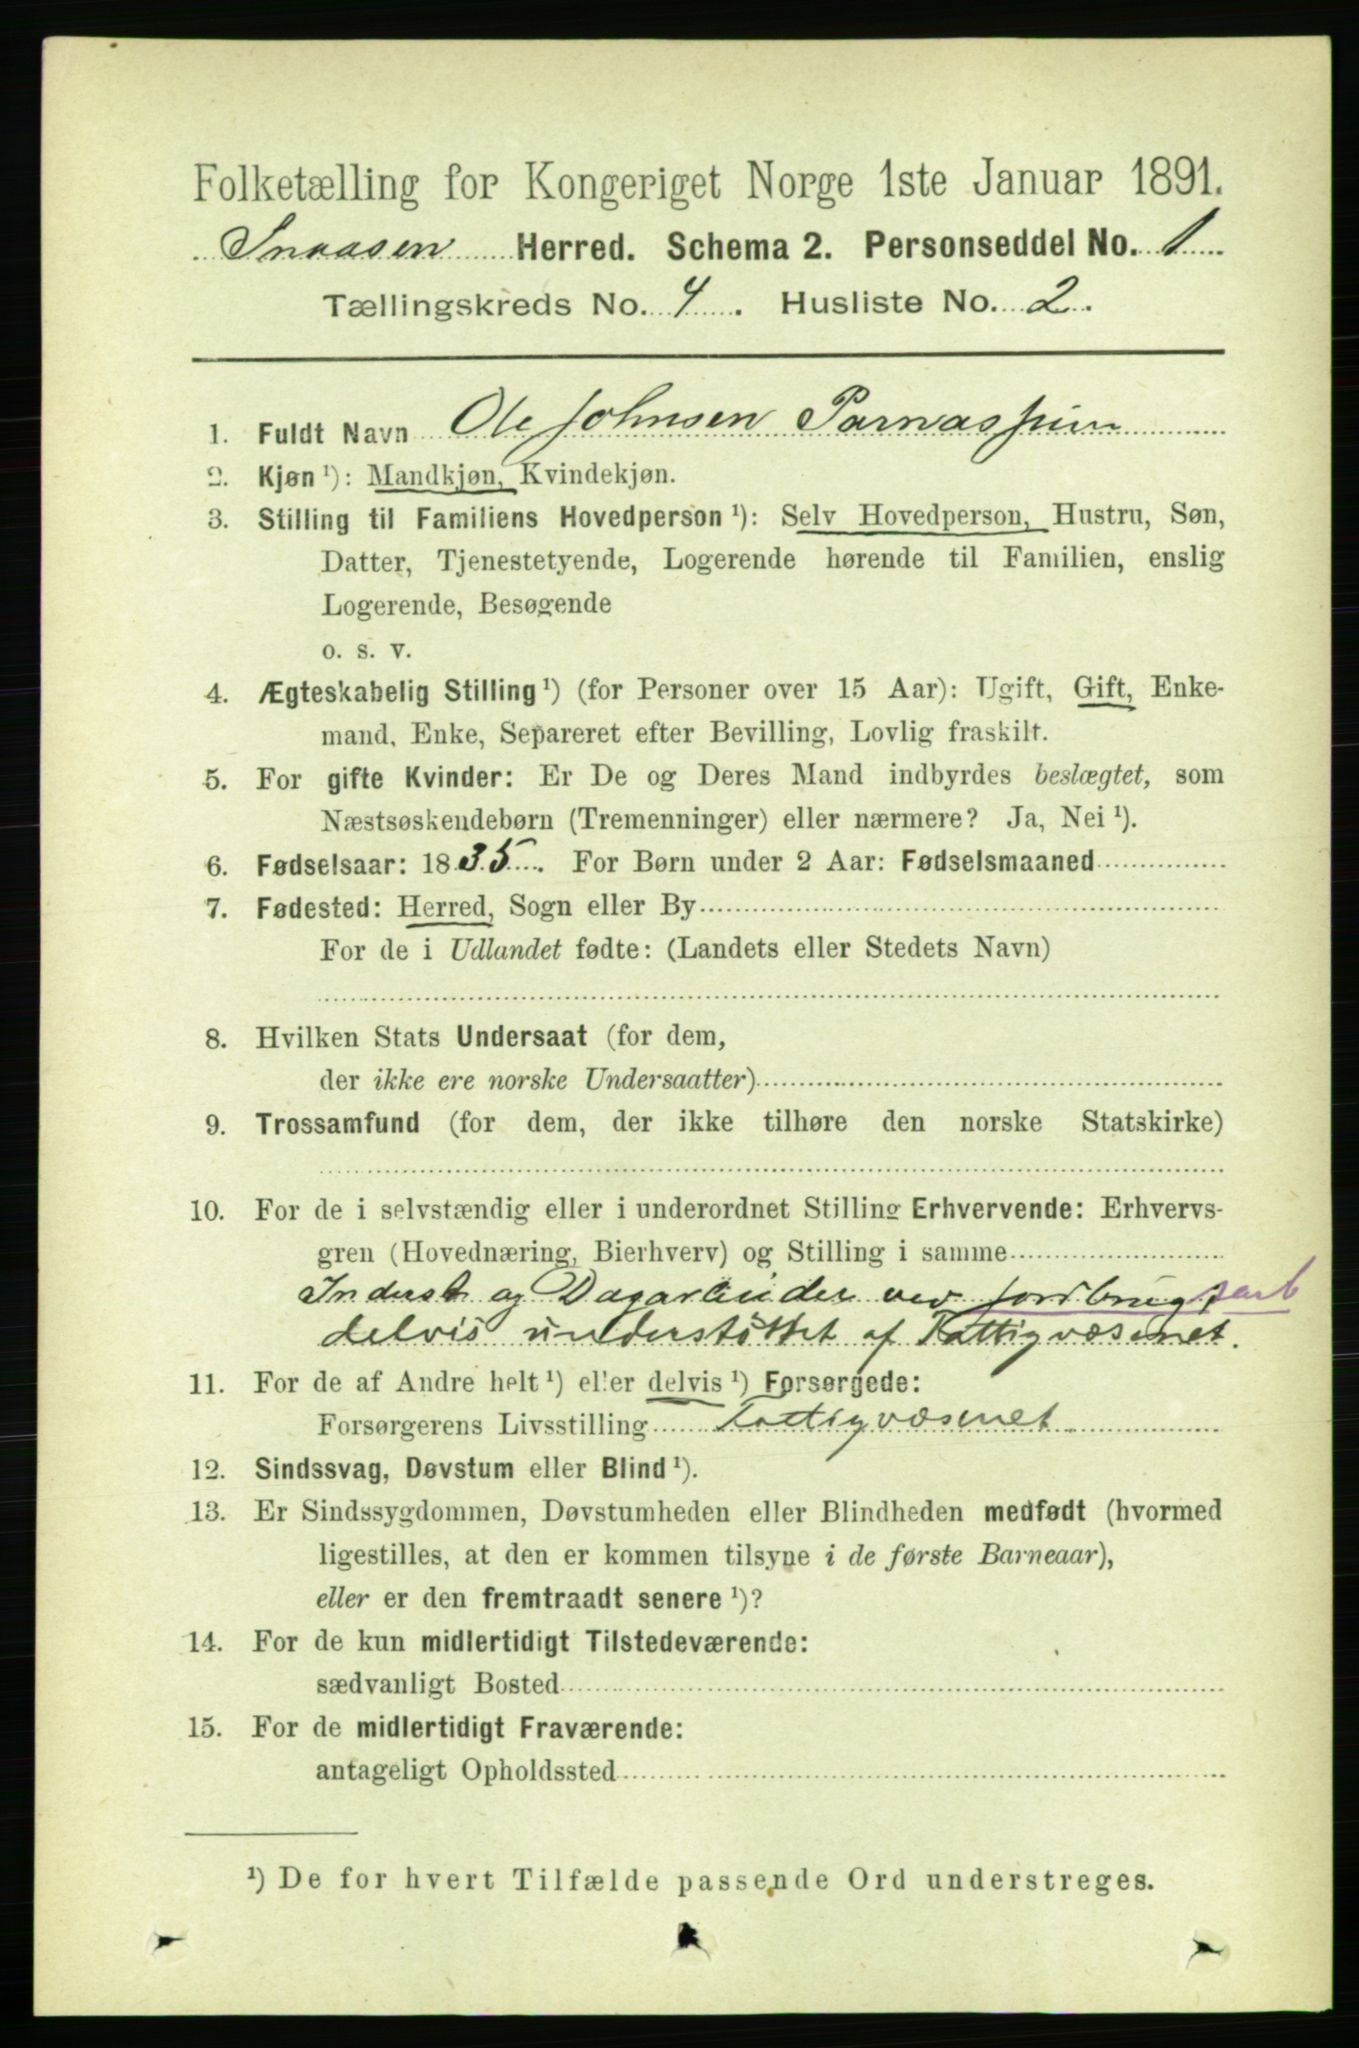 Folketælling for Kongeriget Norge 1ste Januar 1891.
Snaasen Herred. Schema 2. Personseddel No. 1
Tællingskreds No. 4. Husliste No. 2.
1. Fuldt Navn Ole Johnsen
2. Kjøn ¹): Mandkjøn, Kvindekjøn.
3. Stilling til Familiens Hovedperson ¹): Selv Hovedperson, Hustru, Søn,
Datter, Tjenestetyende, Logerende hørende til Familien, enslig
Logerende, Besøgende
o. s. v.
4. Ægteskabelig Stilling ¹) (for Personer over 15 Aar): Ugift, Gift, Enke-
mand, Enke, Separeret efter Bevilling, Lovlig fraskilt.
5. For gifte Kvinder: Er De og Deres Mand indbyrdes beslægtet, som
Næstsøskendebørn (Tremenninger) eller nærmere? Ja, Nei ¹).
6. Fødselsaar: 1835. For Børn under 2 Aar: Fødselsmaaned
7. Fødested: Herred, Sogn eller By
For de i Udlandet fødte: (Landets eller Stedets Navn)
8. Hvilken Stats Undersaat (for dem,
der ikke ere norske Undersaatter)
9. Trossamfund (for dem, der ikke tilhøre den norske Statskirke)
10. For de i selvstændig eller i underordnet Stilling Erhvervende: Erhvervs-
gren (Hovednæring, Bierhverv) og Stilling i samme
Inderst og Dagarbeider ved Jordbrugsarb
delvis understöttet af Fattigvæsenet.
11. For de af Andre helt ¹) eller delvis ¹) Forsørgede:
Forsørgerens Livsstilling Fattigvæsenet
12. Sindssvag, Døvstum eller Blind ¹).
13. Er Sindssygdommen, Døvstumheden eller Blindheden medfødt (hvormed
ligestilles, at den er kommen tilsyne i de første Barneaar),
eller er den fremtraadt senere ¹)?
14. For de kun midlertidigt Tilstedeværende:
sædvanligt Bosted
15. For de midlertidigt Fraværende:
antageligt Opholdssted
¹) De for hvert Tilfælde passende Ord understreges.